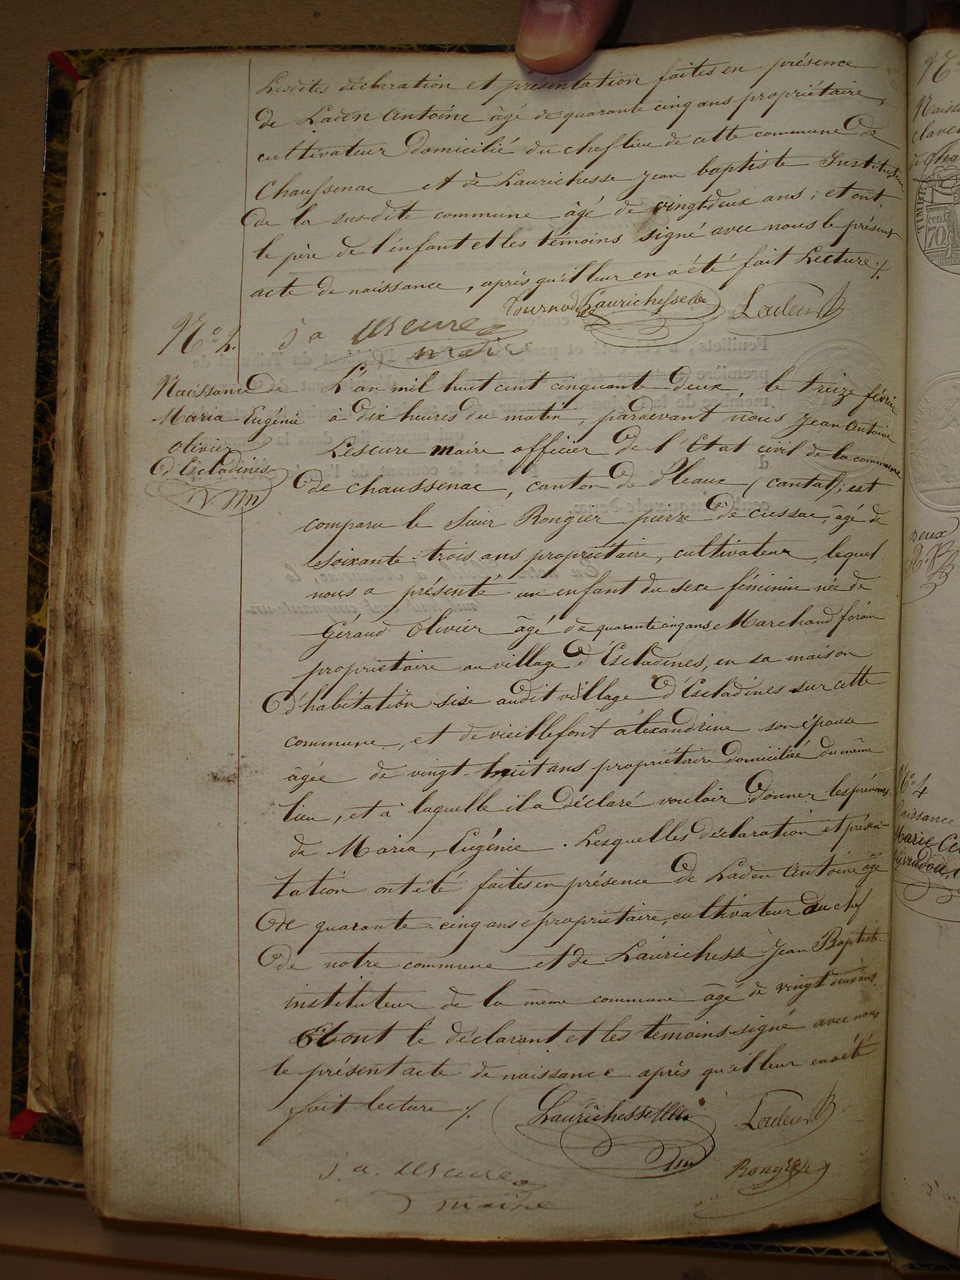 Lesdites déclaration et présentation faites en présence
de Laden Antoine âgé de quarante cinq ans propriétaire,
cultivateur domicilié du chef lieu de cette commune de
Chaussenac et de Laurichesse Jean baptiste Instituteur
de la susdite commune âgé de vingt deux ans; et ont
le père de l'enfant et les témoins signé avec nous le présent
acte de naissance, après qu'il leur en a été fait Lecture ./.
Laurichesse
j a Lescure
maire
N° 2.
Naissance de
Maria Eugénie
Olivier
d'Escladines
L'an mil huit cent cinquante deux le treize février
à dix heures du matin, pardevant nous Jean Antoine
Lescure maire officier de l'Etat civil de la commune
de chaussenac, canton de Pleaux (cantal), est
comparu le sieur Rongier pierre de cussac, âgé de
soixante-trois ans propriétaire, cultivateur, lequel
nous a présenté un enfant du sexe féminin née de
Géraud Olivier âgé de quarante cinq ans Marchand forain
propriétaire au village d'Escladines, en sa maison
d'habitation sise audit village d'Escladines sur cette
commune, et de vieillefont alexandrine son épouse
âgée de vingt-huit ans propriétaire domiciliée du même
lieu, et à laquelle il a déclaré vouloir donner les prénoms
de Maria, Eugénie. Lesquelles déclaration et présen-
tation ont été faites en présence de Laden Antoine âgé
de quarante-cinq ans propriétaire, cultivateur du chef
de notre commune et de Laurichesse Jean Baptiste
instituteur de la même commune âgé de vingt deux ans.
Et ont le déclarant et les témoins signé avec nous
le présent acte de naissance après qu'il leur en a été
fait lecture ./.
Laurichesse
Rongier
j a Lescure
maire
N° 4
Naissance
Marie